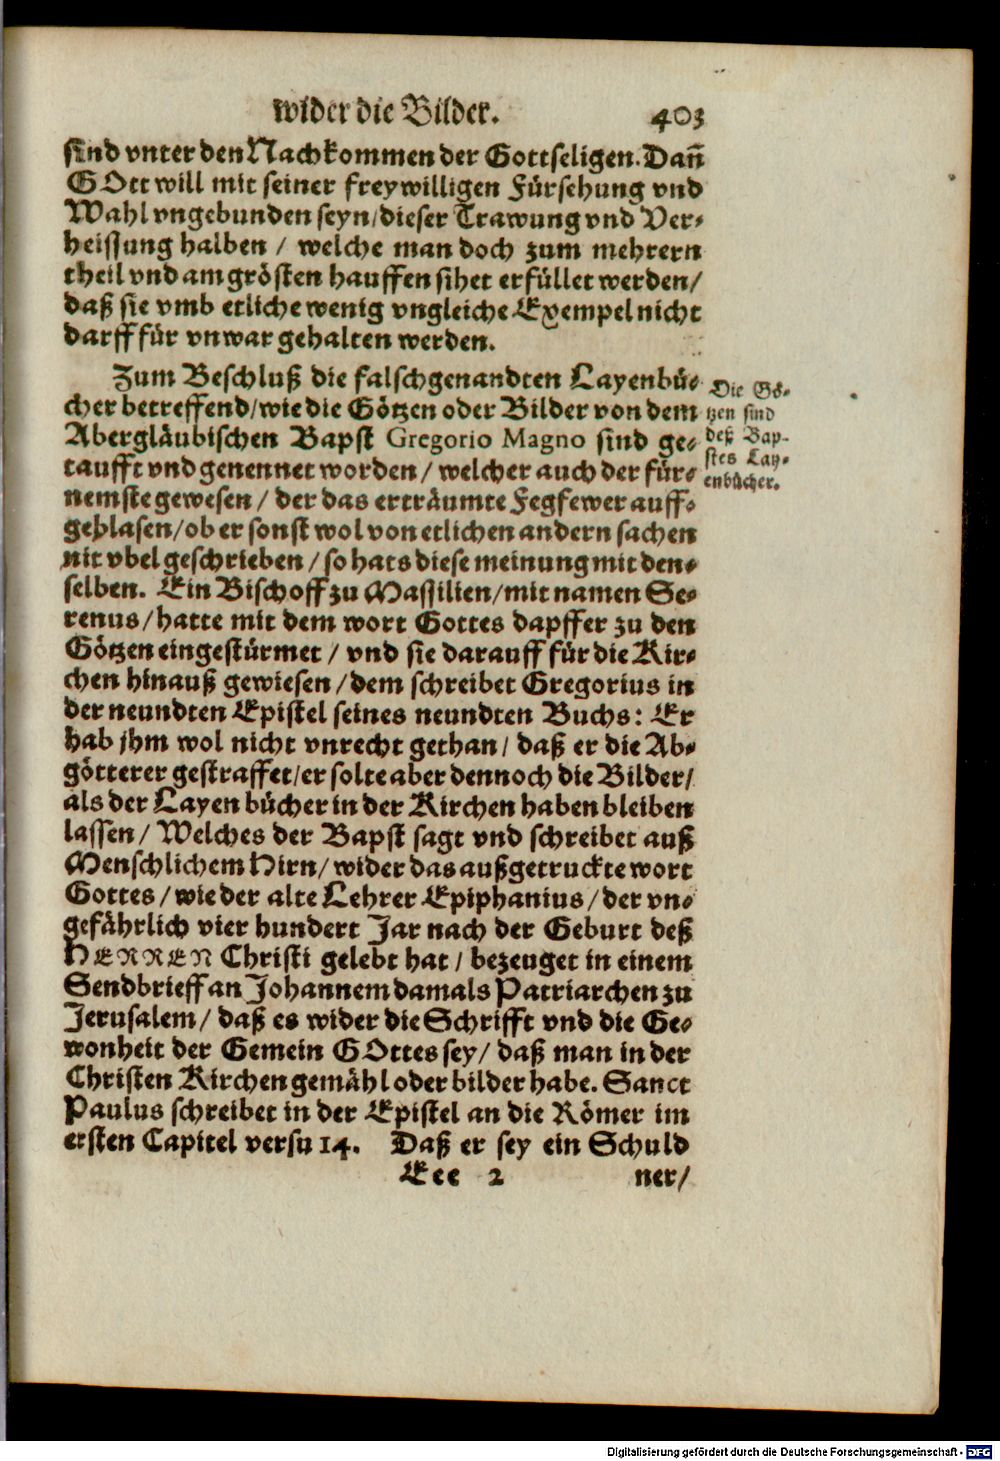 wider die Bilder. 403
sind vnter den Nachkommen der Gottseligen. Dañ
GOtt will mit seiner freywilligen Fürsehung vnd
Wahl vngebunden seyn/ dieser Trawung vnd Ver-
heissung halben / welche man doch zum mehrern
theil vnd am grösten hauffen sihet erfüllet werden/
daß sie vmb etliche wenig vngleiche Exempel nicht
darff für vnwar gehalten werden.
Zum Beschluß die falschgenandten Layenbü-
cher betreffend/ wie die Götzen oder Bilder von dem
Abergläubischen Bapst Gregorio Magno sind ge-
taufft vnd genennet worden / welcher auch der für-
nemste gewesen / der das erträumte Fegfewer auff-
geblasen/ ob er sonst wol von etlichen andern sachen
nit vbel geschrieben / so hats diese meinung mit den-
selben. Ein Bischoff zu Massilien/ mit namen Se-
renus/ hatte mit dem wort Gottes dapffer zu den
Götzen eingestürmet / vnd sie darauff für die Kir-
chen hinauß gewiesen / dem schreibet Gregorius in
der neundten Epistel seines neundten Buchs: Er
hab jhm wol nicht vnrecht gethan / daß er die Ab-
götterer gestraffet/ er solte aber dennoch die Bilder/
als der Layen bücher in der Kirchen haben bleiben
lassen / Welches der Bapst sagt vnd schreibet auß
Menschlichem Hirn/ wider das außgetruckte wort
Gottes / wie der alte Lehrer Epiphanius / der vn-
gefährlich vier hundert Jar nach der Geburt deß
HERREN Christi gelebt hat / bezeuget in einem
Sendbrieff an Johannem damals Patriarchen zu
Jerusalem / daß es wider die Schrifft vnd die Ge-
wonheit der Gemein GOttes sey / daß man in der
Christen Kirchen gemähl oder bilder habe. Sanct
Paulus schreibet in der Epistel an die Römer im
ersten Capitel versu 14. Daß er sey ein Schuld
Eee 2 ner/
Die Gö-
tzen sind
deß Bap-
stes Lay-
enbücher.
Digitalisierung gefördert durch die Deutsche Forschungsgemeinschaft - DFG